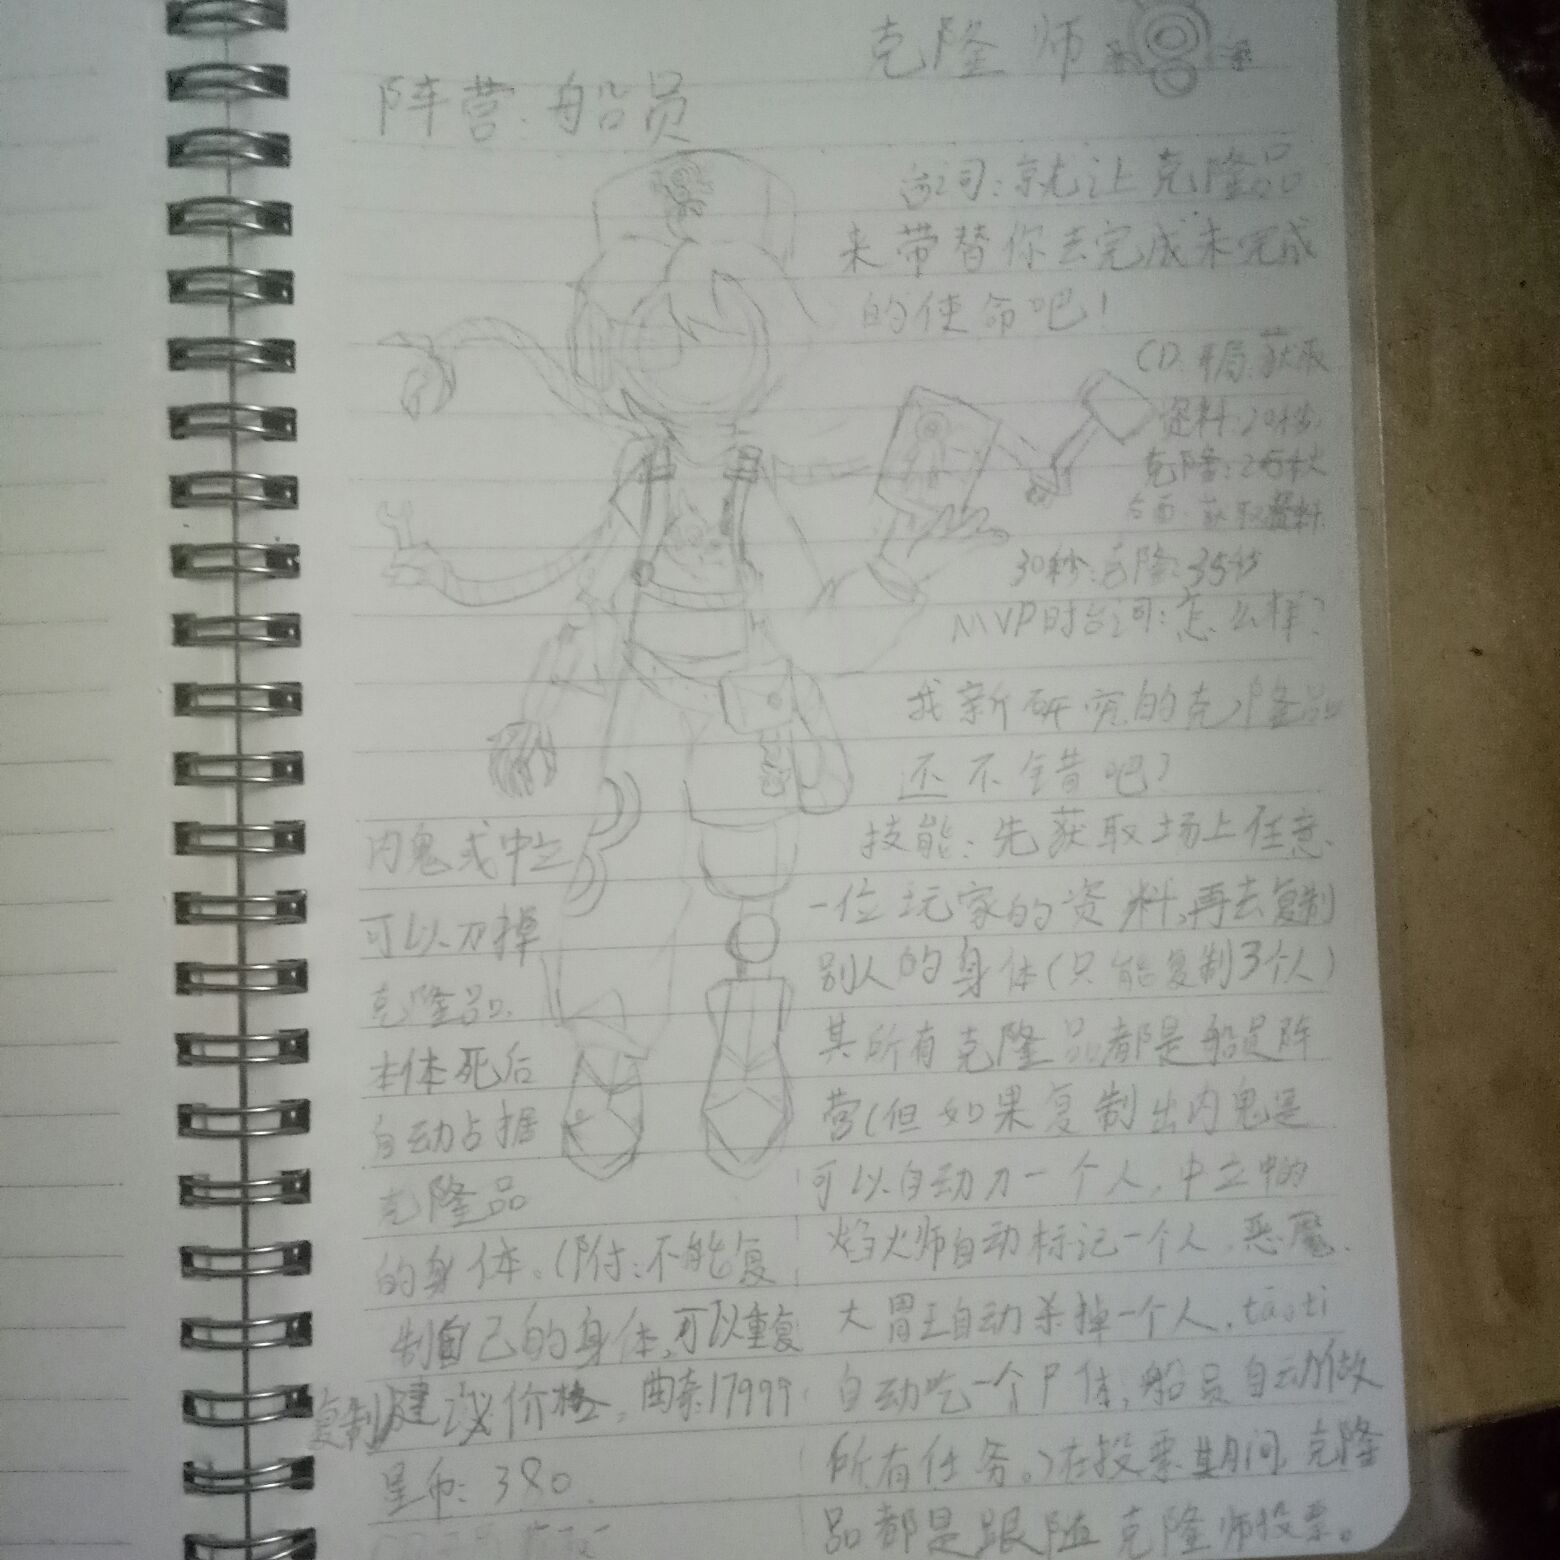 克隆师
阵营:船员
台词:就让克隆品
来带替你去完成未完成
的使命吧!
CD:开局:获取
资料:20秒
克隆:25秒
获取资料
30秒:克隆:35秒
MVP时台词:怎么样?
我新研究的克隆品
还不错吧?
技能:先获取场上任意
一位玩家的资料,再去复制
别人的身体(只能复制3个人)
其所有克隆品都是船员阵
营(但如果复制出内鬼是
可以自动刀一个人,中立中的
焰火师自动标记一个人,恶魔、
大胃王自动杀掉一个人,tāoti
自动吃一个尸体,船员自动做
所有任务。)在投票期间,克隆
品都是跟随克隆师投票。
内鬼或中立
可以刀掉
克隆品。
本体死后
自动占据
克隆品
的身体。(附:不能复
制自己的身体,可以重复
复制)建议价格,曲奈17999
星币:380